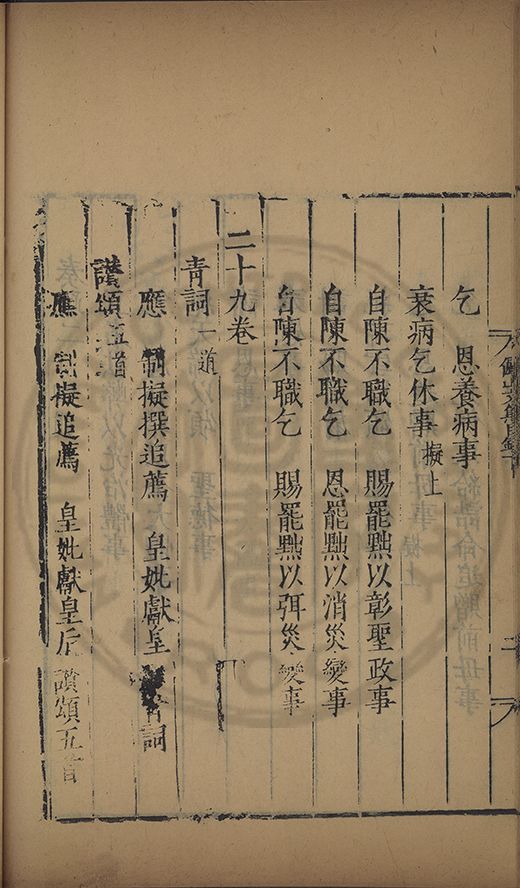 乞　恩養病事
衰病乞休事擬上
自陳不職乞　賜罷黜以彰聖政事
自陳不職乞　恩罷黜以消災變事
自陳不職乞　賜罷黜以弭災變事
二十九卷
青詞一道
應　制擬撰追薦　皇妣獻皇　青詞
讚頌五首
應　制擬追薦　皇妣獻皇后讚頌五首